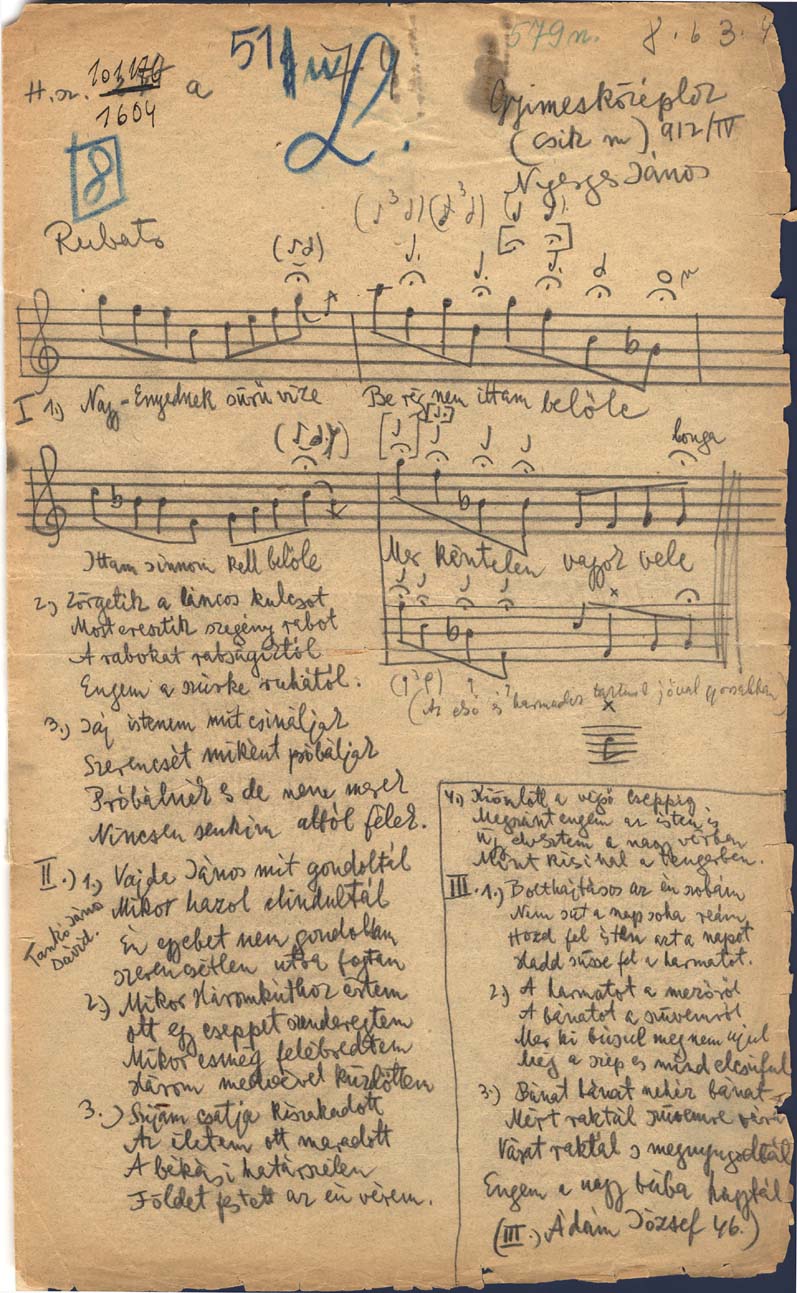 H. sz. 101170 a
1604
51
2.
579n.
8.63.4
8
Gyimesközéplok
(Csik m) 912/IV
Nyerges János
Rubato
I 1) Nagy-Enyednek sürü vize Be rég nem ittam belőle
longa
Ittam innom kell belőle Mer köntelen vagyok vele
2) Zörgetik a láncos kulcsot
Most eresztik szegény rabot
A rabokat rabságiktól
Engem a szürke ruhától.
(Az első és harmadik jóval gyorsabban)
3.) Jáj istenem mit csináljak
Szerencsét miként próbáljak
Próbálnék es de nem merek
Nincsen senkim attól félek.
II.) 1.) Vajda János mit gondoltál
Mikor hazol elindultál
Én egyebet nem gondoltam
szerencsétlen utra fogtam
Tankó János
Dávid.
2.) Mikor Háromkúthoz értem
ott egy cseppet szenderegtem
Mikor esmég felébredtem
Három medvével küzdöttem
3.) Szijam csatja kiszakadott
Az életem ott maradott
A békási határszélen
Földet festett az én vérem.
4.) Kiomlott a végső cseppig
Megszánt engem az isten is
Ugy elvesztem a nagy vérben
Mint kicsi hal a tengerben.
III. 1.) Bolthajtásos az én szobám
Nem süt a nap soha reám
Hozd fel isten azt a napot
Hadd süsse fel a harmatot.
2.) A harmatot a mezőről
A bánatot a szüvemről
Mer ki búsul meg nem ujul
Még a szép es mind elcsuful
3.) Bánat bánat nehéz bánat
Mért raktál szüvemre várat
Várat raktál s megnyugodtál
Engem a nagy búba hagytál
(III.) Ádám József 46.)